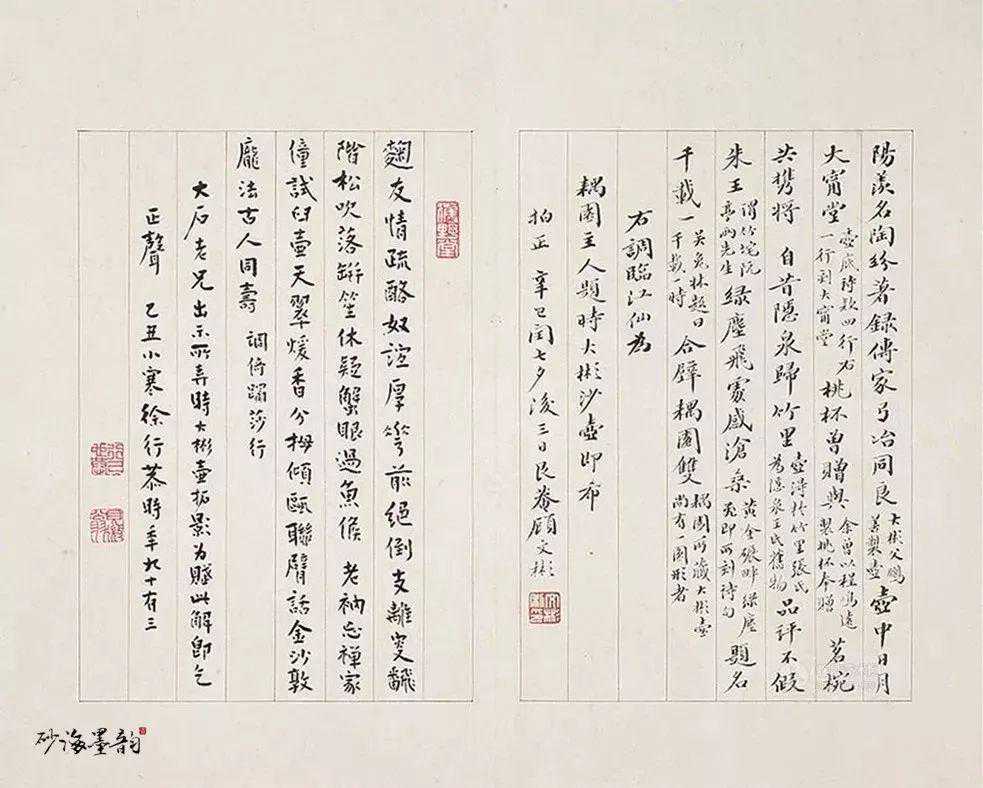 陽羨名陶紛著錄傳家弓冶同良大彬父鵬善製壺壺中日月
大甯堂壺底詩款四行右一行刻大甯堂桃杯曾贈與余曾以程鳴遠製桃杯奉贈茗椀
共攜將 自昔隱泉歸竹里壺得於竹里張氏為隱泉王氏舊物品評不假
朱王謂竹垞阮亭兩先生綠塵飛處感滄桑黃金碾畔綠塵飛即所刻詩句題名
千載一吳兔牀題曰千載一時合璧耦園雙耦園所藏大彬壺尚有一圓形者
右調臨江仙為
耦園主人題時大彬沙壺即布
拍正 辛巳閏七夕後三日艮菴顧文彬
麴友情疏酪奴誼厚花前絕倒支離叟飜
階松吹落缾笙休疑蟹眼過魚候 老衲忘禪家
僮試臼壺天翠煖香分拇傾甌聯臂話金沙敦
龐法古人同壽 調倚踏莎行
大石老兄出示所弄時大彬壺拓影為賤此解即乞
正聲 乙丑小寒徐行恭時年九十有三
砂海墨韵